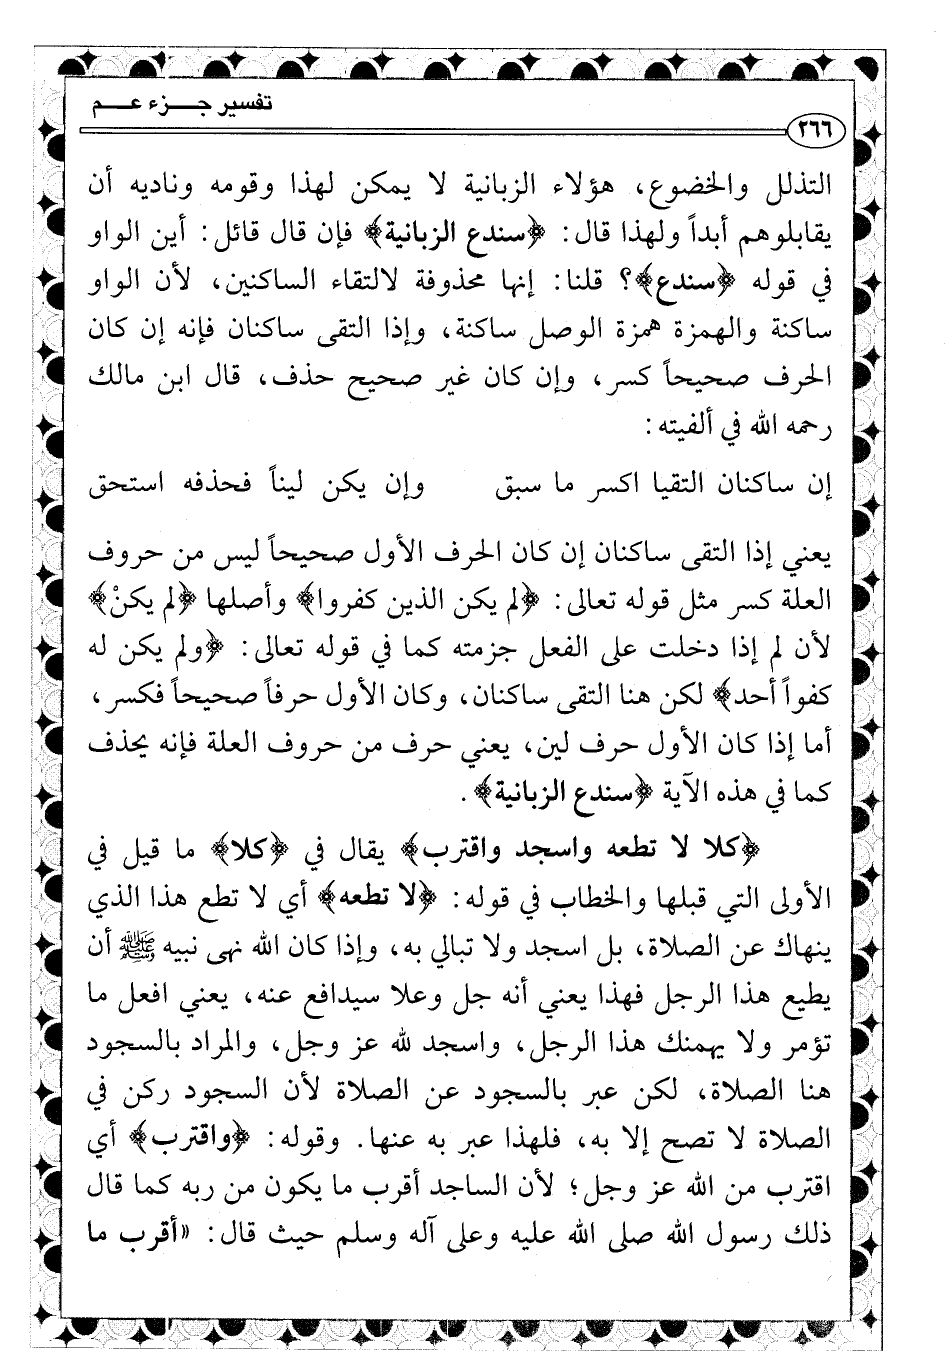 تفسير جـــزء عـــم
٢٦٦
التذلل والخضوع، هؤلاء الزبانية لا يمكن لهذا وقومه وناديه أن
يقابلوهم أبداً ولهذا قال: ﴿سندع الزبانية﴾ فإن قال قائل: أين الواو
في قوله ﴿سندع﴾؟ قلنا: إنها محذوفة لالتقاء الساكنين، لأن الواو
ساكنة والهمزة همزة الوصل ساكنة، وإذا التقى ساكنان فإنه إن كان
الحرف صحيحاً كسر، وإن كان غير صحيح حذف، قال ابن مالك
رحمه الله في ألفيته:
إن ساكنان التقيا اكسر ما سبق وإن يكن ليناً فحذفه استحق
يعني إذا التقى ساكنان إن كان الحرف الأول صحيحاً ليس من حروف
العلة كسر مثل قوله تعالى: ﴿لم يكن الذين كفروا﴾ وأصلها ﴿لم يكنْ﴾
لأن لم إذا دخلت على الفعل جزمته كما في قوله تعالى: ﴿ولم يكن له
كفواً أحد﴾ لكن هنا التقى ساكنان، وكان الأول حرفاً صحيحاً فكسر،
أما إذا كان الأول حرف لين، يعني حرف من حروف العلة فإنه يحذف
كما في هذه الآية ﴿سندع الزبانية﴾.
﴿كلا لا تطعه واسجد واقترب﴾ يقال في ﴿كلا﴾ ما قيل في
الأولى التي قبلها والخطاب في قوله: ﴿لا تطعه﴾ أي لا تطع هذا الذي
ينهاك عن الصلاة، بل اسجد ولا تبالي به، وإذا كان الله نهى نبيه ﷺ أن
يطيع هذا الرجل فهذا يعني أنه جل وعلا سيدافع عنه، يعني افعل ما
تؤمر ولا يهمنك هذا الرجل، واسجد لله عز وجل، والمراد بالسجود
هنا الصلاة، لكن عبر بالسجود عن الصلاة لأن السجود ركن في
الصلاة لا تصح إلا به، فلهذا عبر به عنها. وقوله: ﴿واقترب﴾ أي
اقترب من الله عز وجل؛ لأن الساجد أقرب ما يكون من ربه كما قال
ذلك رسول الله صلى الله عليه وعلى آله وسلم حيث قال: «أقرب ما